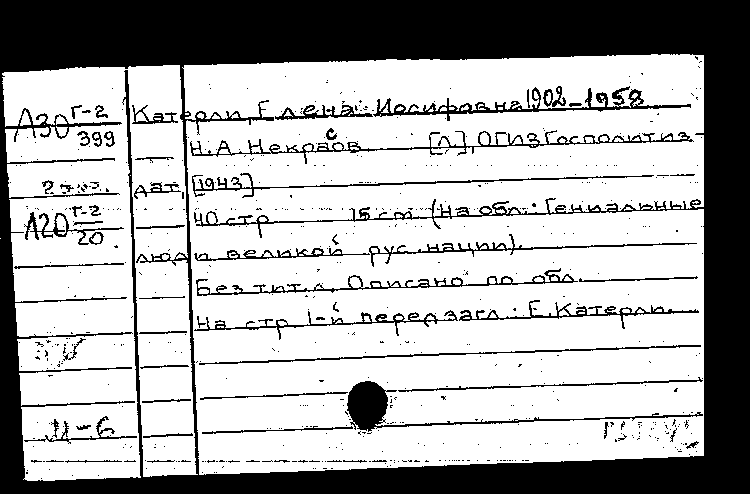 Л30 Г-2/399
Катерли, Елена Иосифовна 1902-1958
Н. А. Некрасов [Л], ОГИЗ Госполитиз-
2 экз.
дат, [1943]
Л20 Г-2/20
40 стр 15 cm (На обл.: Гениальные
люди великой рус. нации).
Без тит. л. Описано по обл.
На стр 1-й перед загл.: Е. Катерли.
М-6